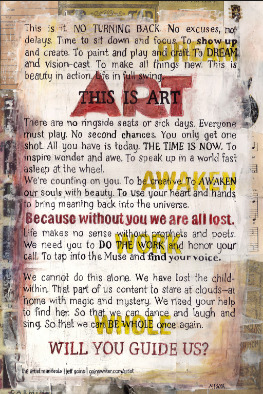 This is it. NO TURNING BACK. No excuses, not
delays. Time to sit down and focus. To show up
and create. To paint and play and craft. To DREAM
and vision-cast. To make all things new. This is
beauty in action. Life in full swing.
ART
THIS IS ART.
There are no ringside seats or sick days. Everyone
must play. No second chances. You only get one
shot. All you have is today. THE TIME IS NOW. To
inspire wonder and awe. To speak up in a world fast
asleep at the wheel.
We're counting on you. To be creative. To AWAKEN
our souls with beauty. To use your heart and hands
to bring meaning back into the universe.
AWAKEN
Because without you we are all lost.
Life makes no sense without prophets and poets.
We need you to DO THE WORK and honor your
call. To tap into the Muse and find your voice.
WORK
We cannot do this alone. We have lost the child-
within. That part of us content to stare at clouds—at
home with magic and mystery. We need your help
to find her. So that we can dance and laugh and
sing. So that we can BE WHOLE once again.
WHOLE
WILL YOU GUIDE US?
the artist manifesto | jeff goins | goinswriter.com/artist